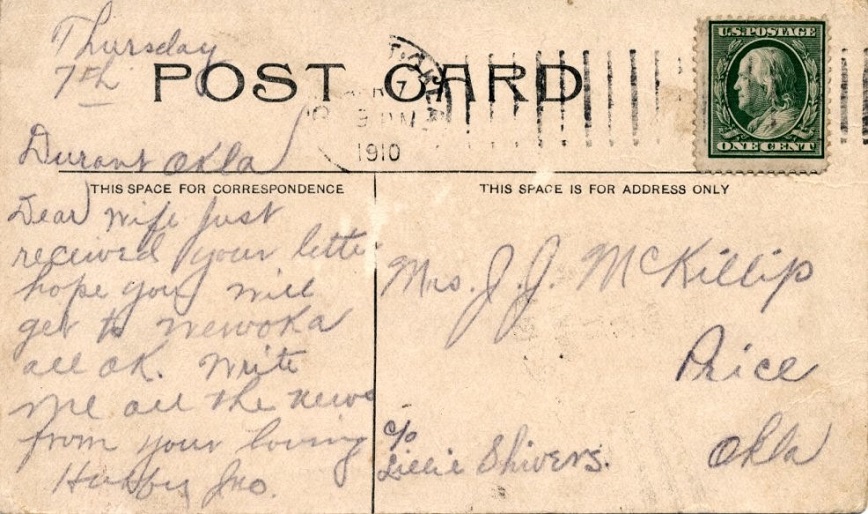 Thursday
7th
POST CARD
7
PM
1910
U.S. POSTAGE
ONE CENT
Durant Okla
THIS SPACE FOR CORRESPONDENCE
THIS SPACE IS FOR ADDRESS ONLY
Dear Wife Just
received your letter
hope you will
get to Wewoka
all OK. Write
me all the news
from your loving
Hubby Jno.
Mrs. J. J. McKillip
Price
Okla
c/o
Lillie Shivers.